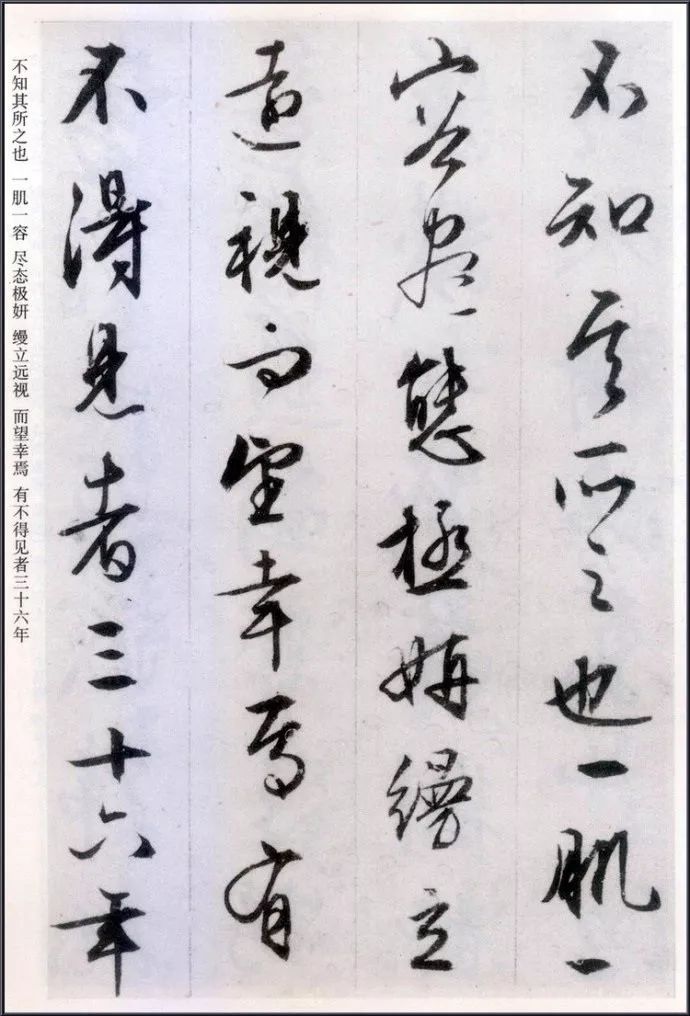 不知其所之也一肌一
容尽態極妍縵立
遠視而望幸焉有
不得見者三十六年
不知其所之也 一肌一容 尽态极妍 缦立远视 而望幸焉 有不得见者三十六年